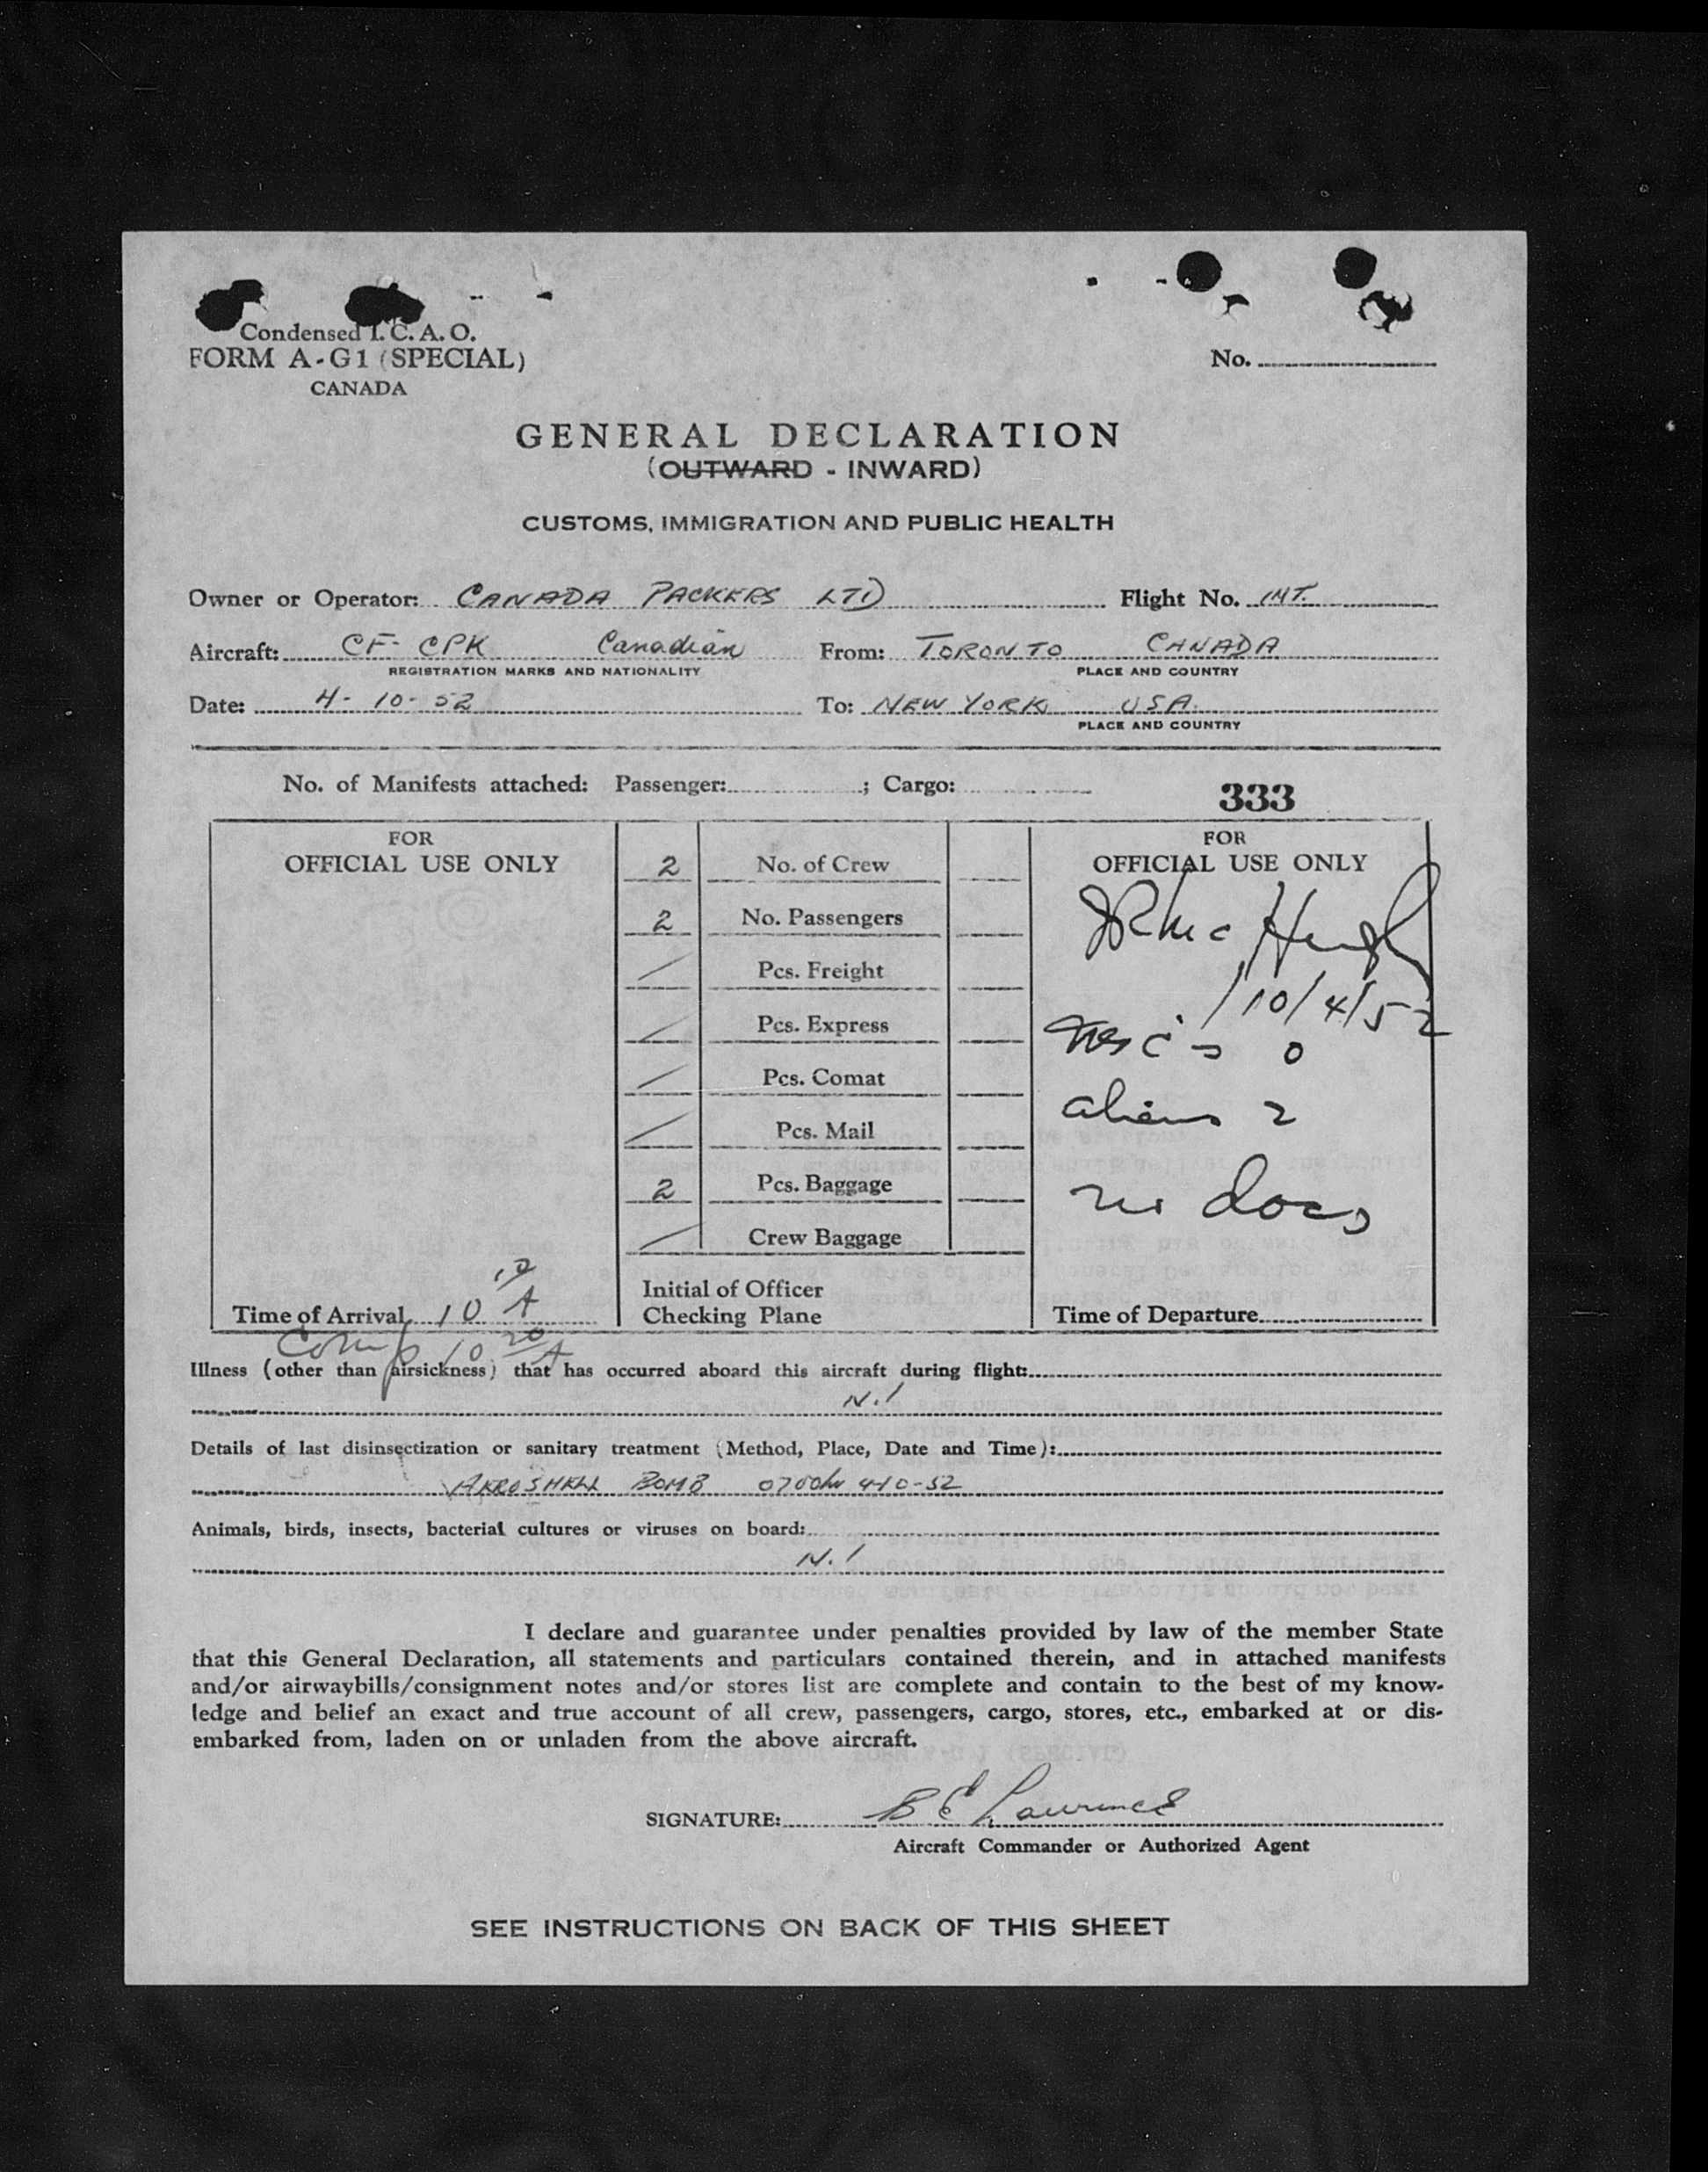 Condensed I. C. A. O.
FORM A-G1 (SPECIAL)
CANADA
No.
GENERAL DECLARATION
(OUTWARD - INWARD)
CUSTOMS, IMMIGRATION AND PUBLIC HEALTH
Owner or Operator: CANADA PACKERS LTD Flight No. INT.
Aircraft: CF-CPK Canadian From: TORONTO CANADA
REGISTRATION MARKS AND NATIONALITY PLACE AND COUNTRY
Date: 4-10-52 To: NEW YORK USA.
PLACE AND COUNTRY
No. of Manifests attached: Passenger: ; Cargo: 333
FOR
OFFICIAL USE ONLY
2 No. of Crew
2 No. Passengers
/ Pcs. Freight
/ Pcs. Express
/ Pcs. Comat
/ Pcs. Mail
2 Pcs. Baggage
/ Crew Baggage
Initial of Officer
Checking Plane
FOR
OFFICIAL USE ONLY
10/4/52
0
aliens 2
no docs
Time of Arrival 10 10 A
Time of Departure
Comp 10 20 A
Illness (other than airsickness) that has occurred aboard this aircraft during flight:
N.I
Details of last disinsectization or sanitary treatment (Method, Place, Date and Time):
AEROSHELL BOMB 0700hr 4-10-52
Animals, birds, insects, bacterial cultures or viruses on board:
N.I
I declare and guarantee under penalties provided by law of the member State
that this General Declaration, all statements and particulars contained therein, and in attached manifests
and/or airwaybills/consignment notes and/or stores list are complete and contain to the best of my know-
ledge and belief an exact and true account of all crew, passengers, cargo, stores, etc., embarked at or dis-
embarked from, laden on or unladen from the above aircraft.
SIGNATURE: B E Lawrence
Aircraft Commander or Authorized Agent
SEE INSTRUCTIONS ON BACK OF THIS SHEET